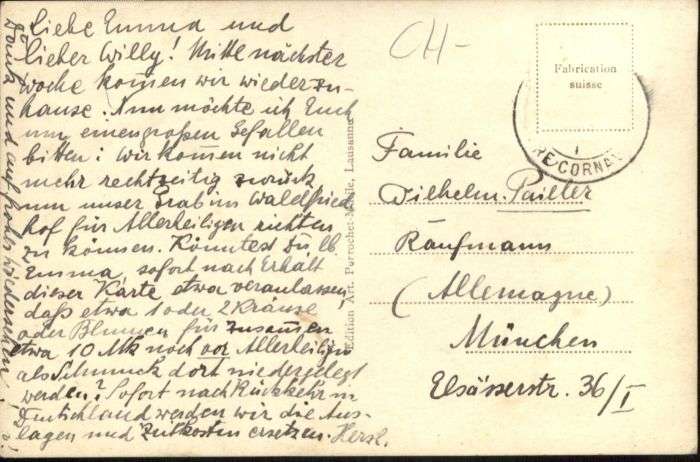 Liebe Emma und
lieber Willy! Mitte nächster
Woche kommen wir wieder zu-
hause. Nun möchte ich Euch
um einen großen Gefallen
bitten: wir kommen nicht
mehr rechtzeitig zurück
um unser Grab im Waldfried
hof für Allerheiligen richten
zu können. Könntest Du lb.
Emma, sofort nach Erhalt
dieser Karte etwa veranlassen,
daß etwa 1 oder 2 Kränze
oder Blumen für zusammen
etwa 10 Mk noch vor Allerheiligen
als Schmuck dort niedergelegt
werden? Sofort nach Rückkehr in
Deutschland werden wir die Aus-
lagen und Unkosten ersetzen. Herzl.
Dank und auf frohes Wiedersehen!
Edition Art. Perrochet-Matile, Lausanne
CH-
Fabrication
suisse
Familie
Wilhelm Pailler
Kaufmann
(Allemagne)
München
Elsässerstr. 36/I